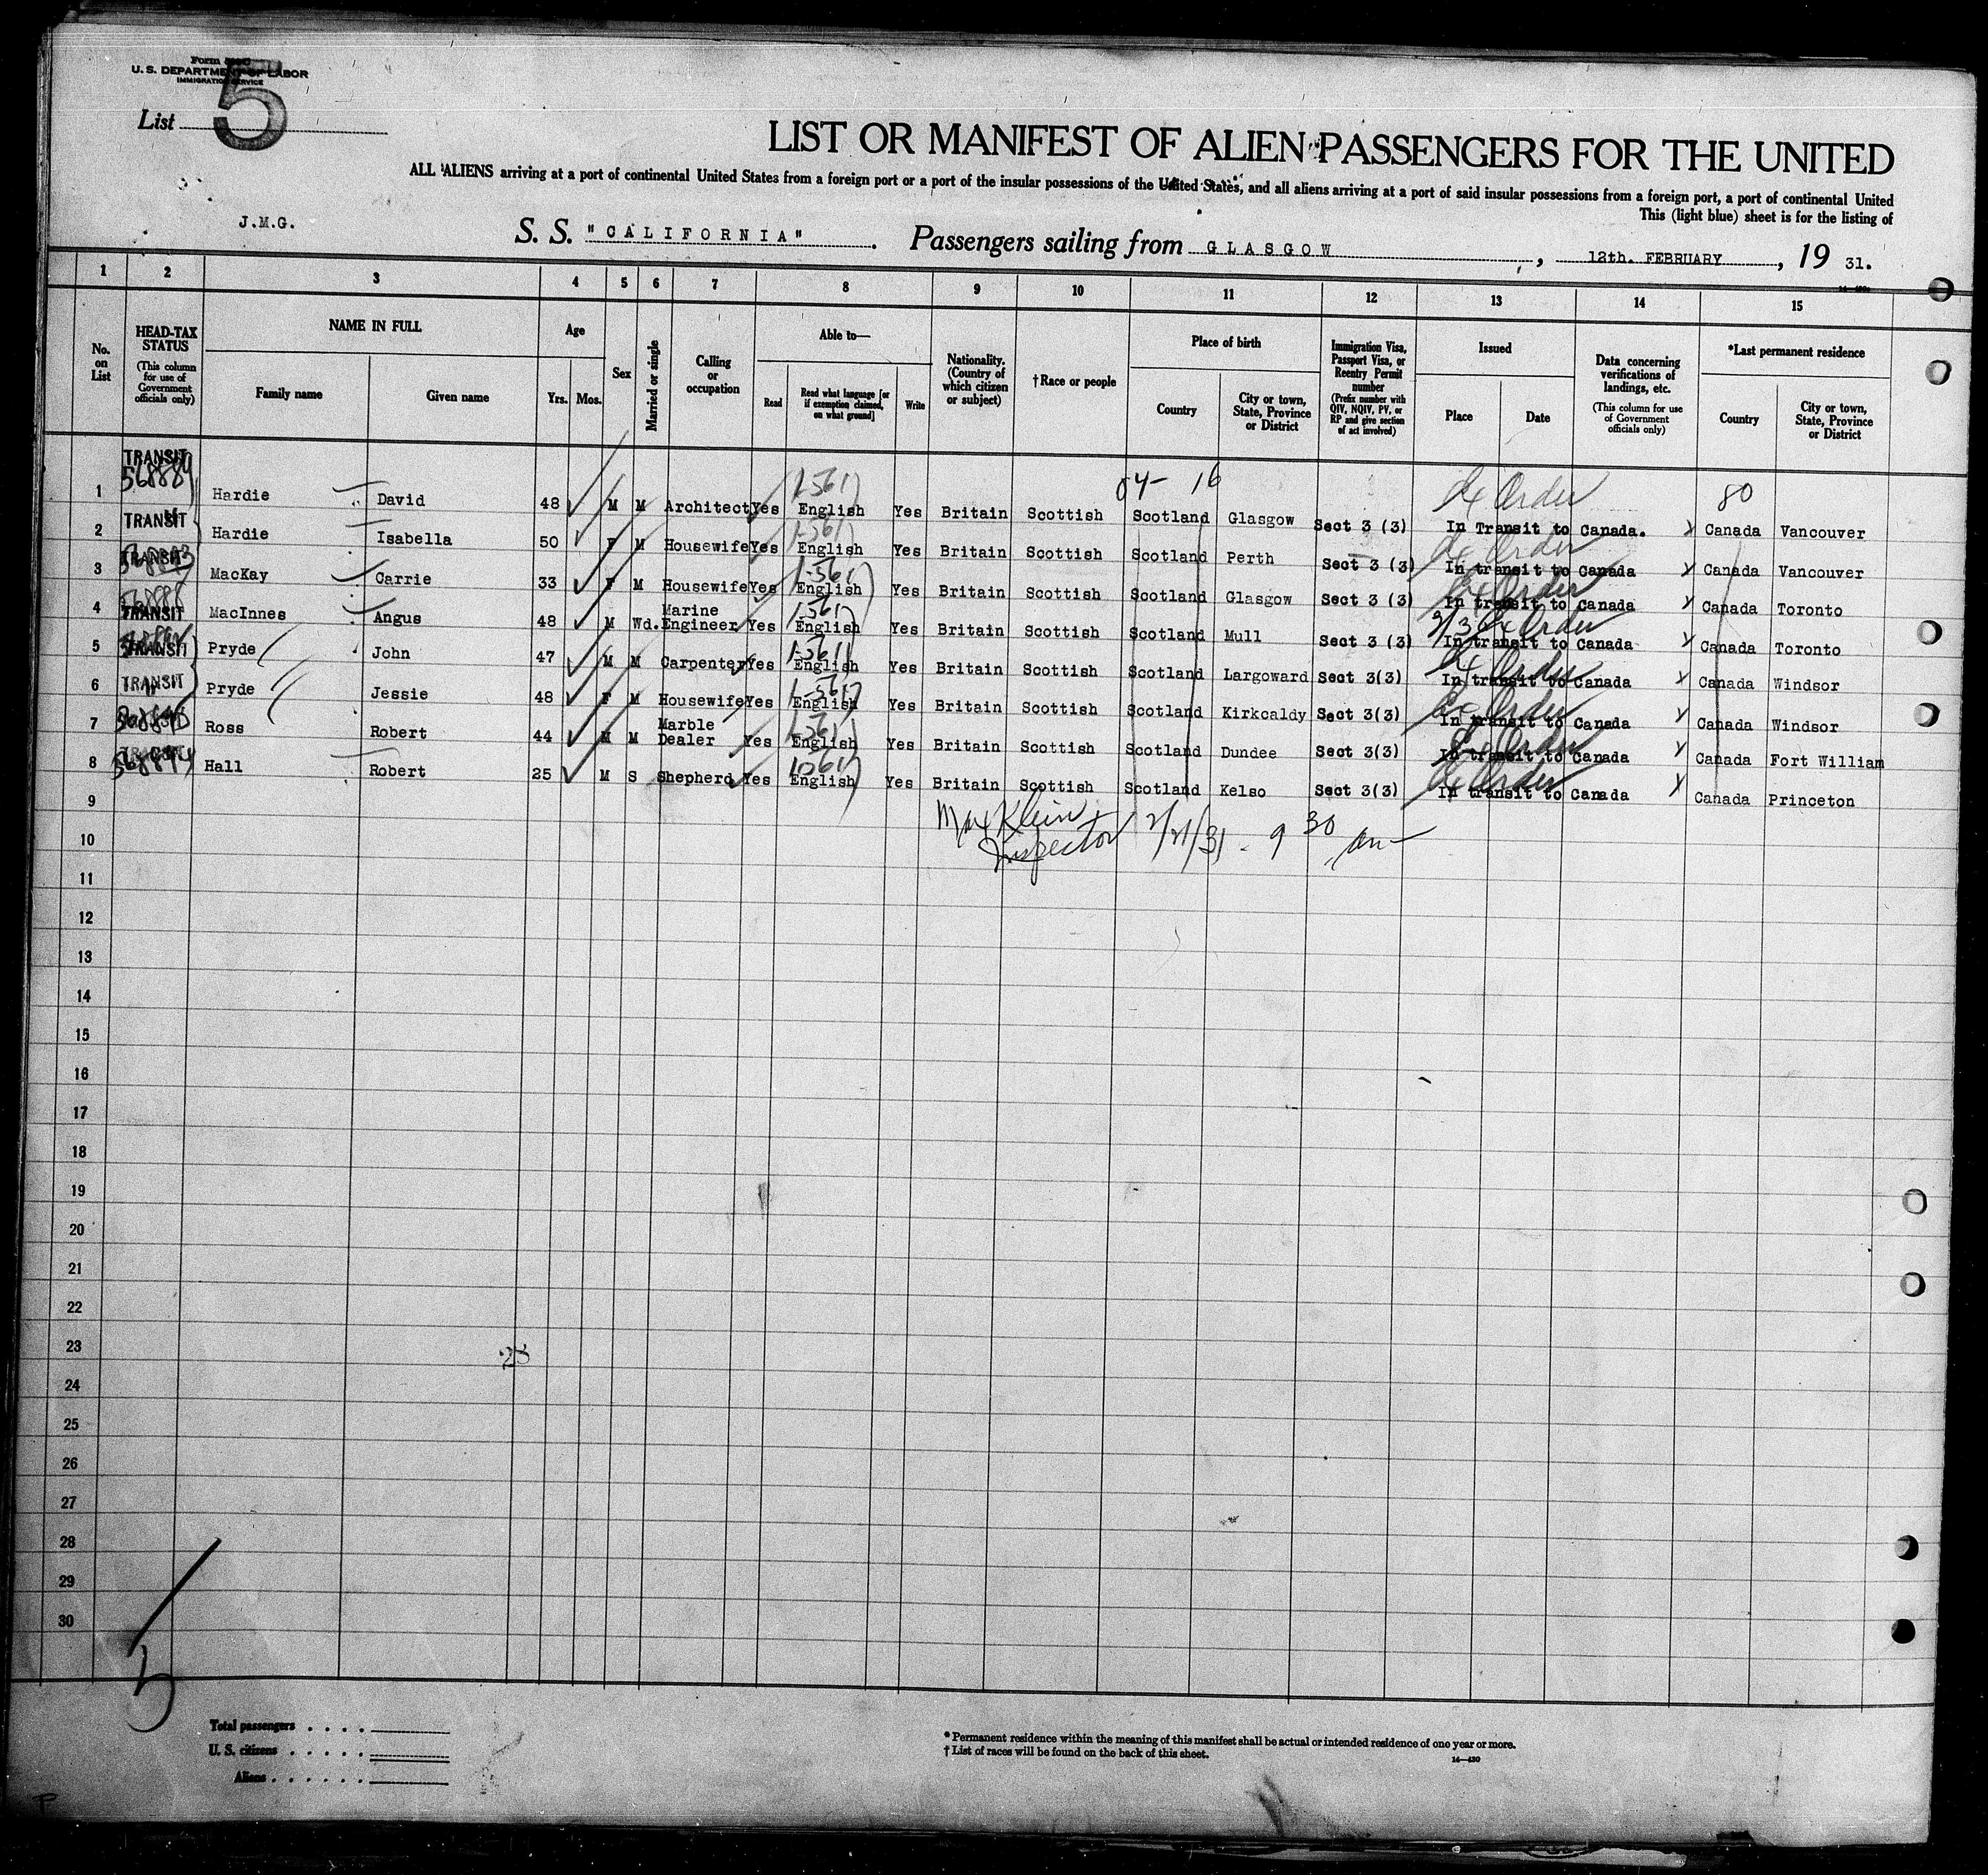 U. S. DEPARTMENT OF LABOR
IMMIGRATION SERVICE
List 5
LIST OR MANIFEST OF ALIEN PASSENGERS FOR THE UNITED
ALL ALIENS arriving at a port of continental United States from a foreign port or a port of the insular possessions of the United States, and all aliens arriving at a port of said insular possessions from a foreign port, a port of continental United
This (light blue) sheet is for the listing of
J.M.G.
S. S. "CALIFORNIA" . Passengers sailing from GLASGOW , 12th. FEBRUARY , 19 31.
1 2 3 4 5 6 7 8 9 10 11 12 13 14 15
No. on List
HEAD-TAX STATUS
(This column for use of Government officials only)
NAME IN FULL
Family name
Given name
Age
Yrs. Mos.
Sex
Married or single
Calling or occupation
Able to—
Read
Read what language [or if exemption claimed, on what ground]
Write
Nationality. (Country of which citizen or subject)
†Race or people
Place of birth
Country
City or town, State, Province or District
Immigration Visa, Passport Visa, or Reentry Permit number
(Prefix number with QIV, NQIV, PV, or RP and give section of act involved)
Issued
Place
Date
Data concerning verifications of landings, etc.
(This column for use of Government officials only)
*Last permanent residence
Country
City or town, State, Province or District
04- 16 80
1 TRANSIT Hardie David 48 M M Architect Yes English Yes Britain Scottish Scotland Glasgow Sect 3 (3) In Transit to Canada. Canada Vancouver
2 TRANSIT Hardie Isabella 50 F M Housewife Yes English Yes Britain Scottish Scotland Perth Sect 3 (3) In transit to Canada Canada Vancouver
3 TRANSIT MacKay Carrie 33 F M Housewife Yes English Yes Britain Scottish Scotland Glasgow Sect 3 (3) In transit to Canada Canada Toronto
4 TRANSIT MacInnes Angus 48 M Wd. Marine Engineer Yes English Yes Britain Scottish Scotland Mull Sect 3 (3) In transit to Canada Canada Toronto
5 TRANSIT Pryde John 47 M M Carpenter Yes English Yes Britain Scottish Scotland Largoward Sect 3(3) In transit to Canada Canada Windsor
6 TRANSIT Pryde Jessie 48 F M Housewife Yes English Yes Britain Scottish Scotland Kirkcaldy Sect 3(3) In transit to Canada Canada Windsor
7 Ross Robert 44 M M Marble Dealer Yes English Yes Britain Scottish Scotland Dundee Sect 3(3) In transit to Canada Canada Fort William
8 Hall Robert 25 M S Shepherd Yes English Yes Britain Scottish Scotland Kelso Sect 3(3) In transit to Canada Canada Princeton
9
Max Klein
Inspector 2/21/31 - 9 30 am
10
11
12
13
14
15
16
17
18
19
20
21
22
23
24
25
26
27
28
29
30
Total passengers . . . .
U. S. citizens . . . . .
Aliens . . . . . .
* Permanent residence within the meaning of this manifest shall be actual or intended residence of one year or more.
† List of races will be found on the back of this sheet.
14—430